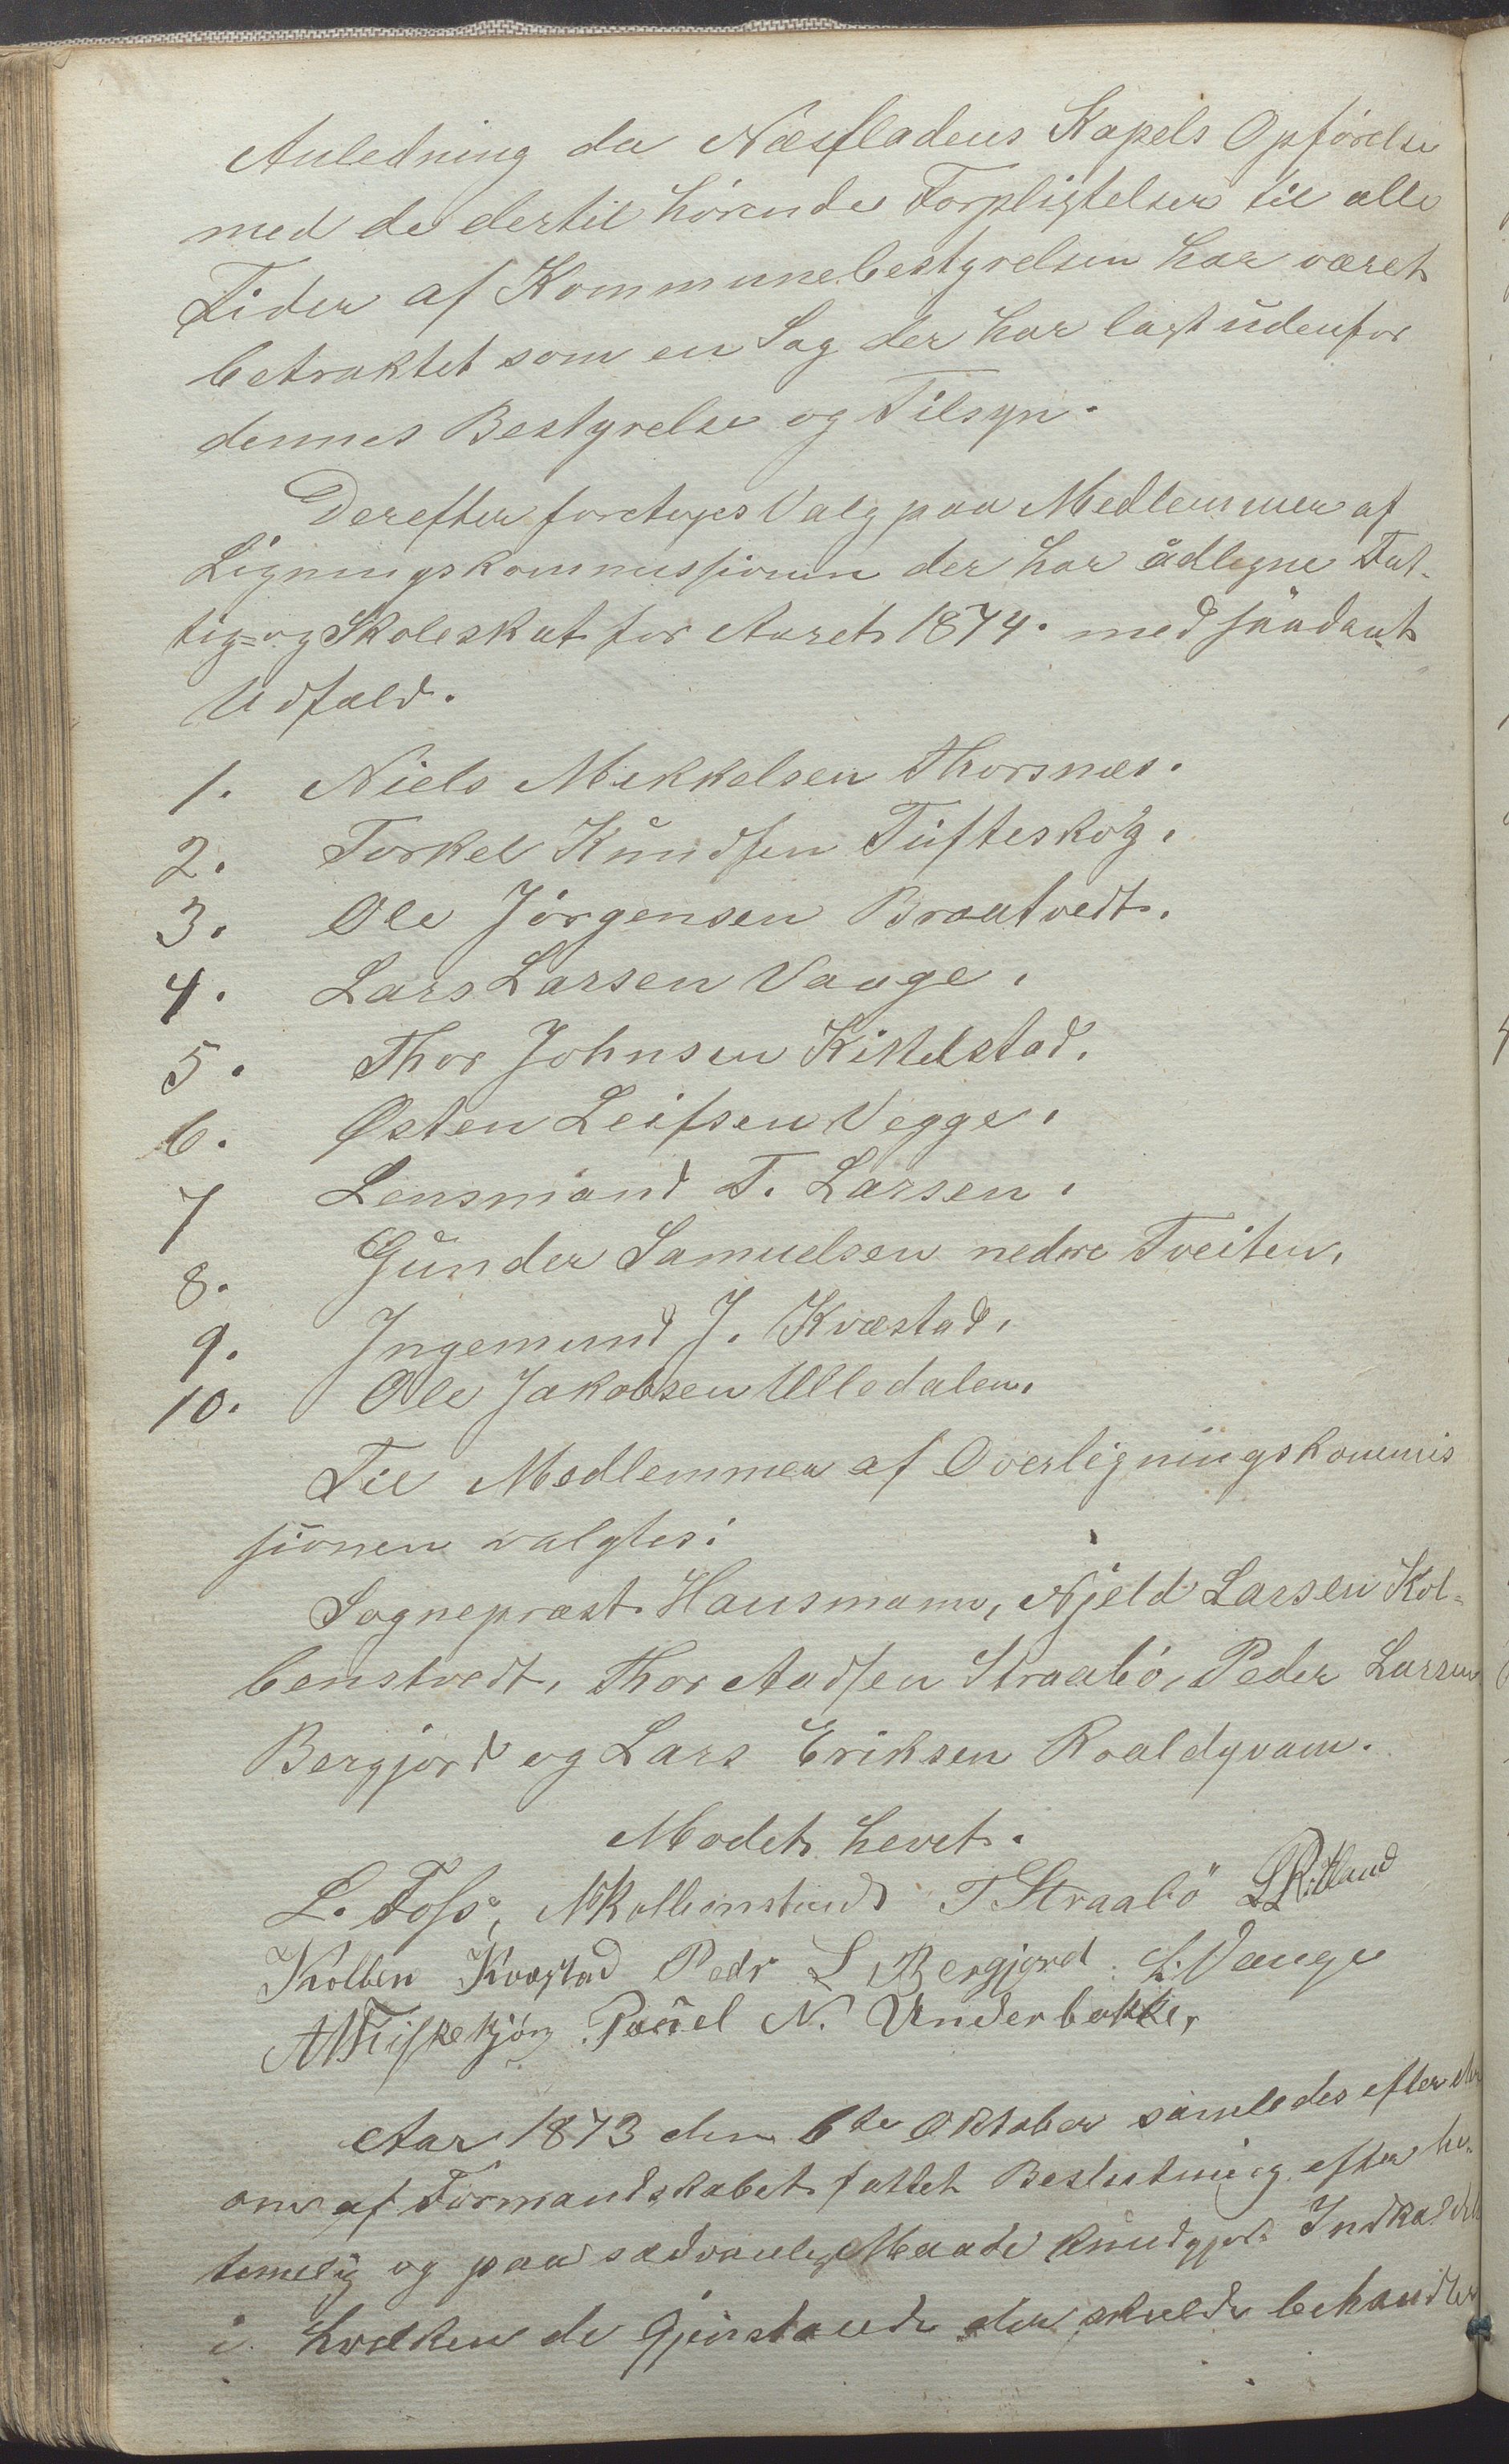 Anledning da Næsfladens Kapels Opförelse
med de dertil hörende Forpligtelser til alle
Tider af Kommunebestyrelsen har været
betraktet som en Sag der har lagt udenfor
dennes Bestyrelse og Tilsyn.
Derefter foretoges Valg paa Medlemmer af
Ligningskommissionen der har ådligne Fat-
tig- og Skoleskat for Aaret 1874. med saadant
Udfald.
1. Niels Mikkelsen Thorsnæs.
2. Torkel Knudsen Tufteskog.
3. Ole Jörgensen Braatvedt.
4. Lars Larsen Vaage.
5. Thor Johnsen Kittelstad.
6. Østen Leifsen Vegge.
7 Lensmand T. Larsen.
8. Gunder Samuelsen nedre Tveiten.
9. Ingemund J. Kvæstad.
10. Ole Jakobsen Ulledalen.
Til Medlemmer af Overligningskommis
sionen valgtes:
Sognepræst Hausmann, Njeld Larsen Kol-
benstvedt, Thor Aadsen Straabö, Peder Larsen
Bergjord og Lars Eriksen Roaldqvam.
Mödet hevet.
L. Foss, T Straabö L Ritland
Kolben Kvæstad Peder L Bergjord. L. Vaage
A Fisketjön Paul N. Underbakke,
Aar 1873 den 6te Oktober samledes efter
om af Formandskabet fattet Beslutning efter be-
timelig og paa sædvanlig Maade kundgjort Indkaldelse
i hvilken de Gjenstande der skulde behandles